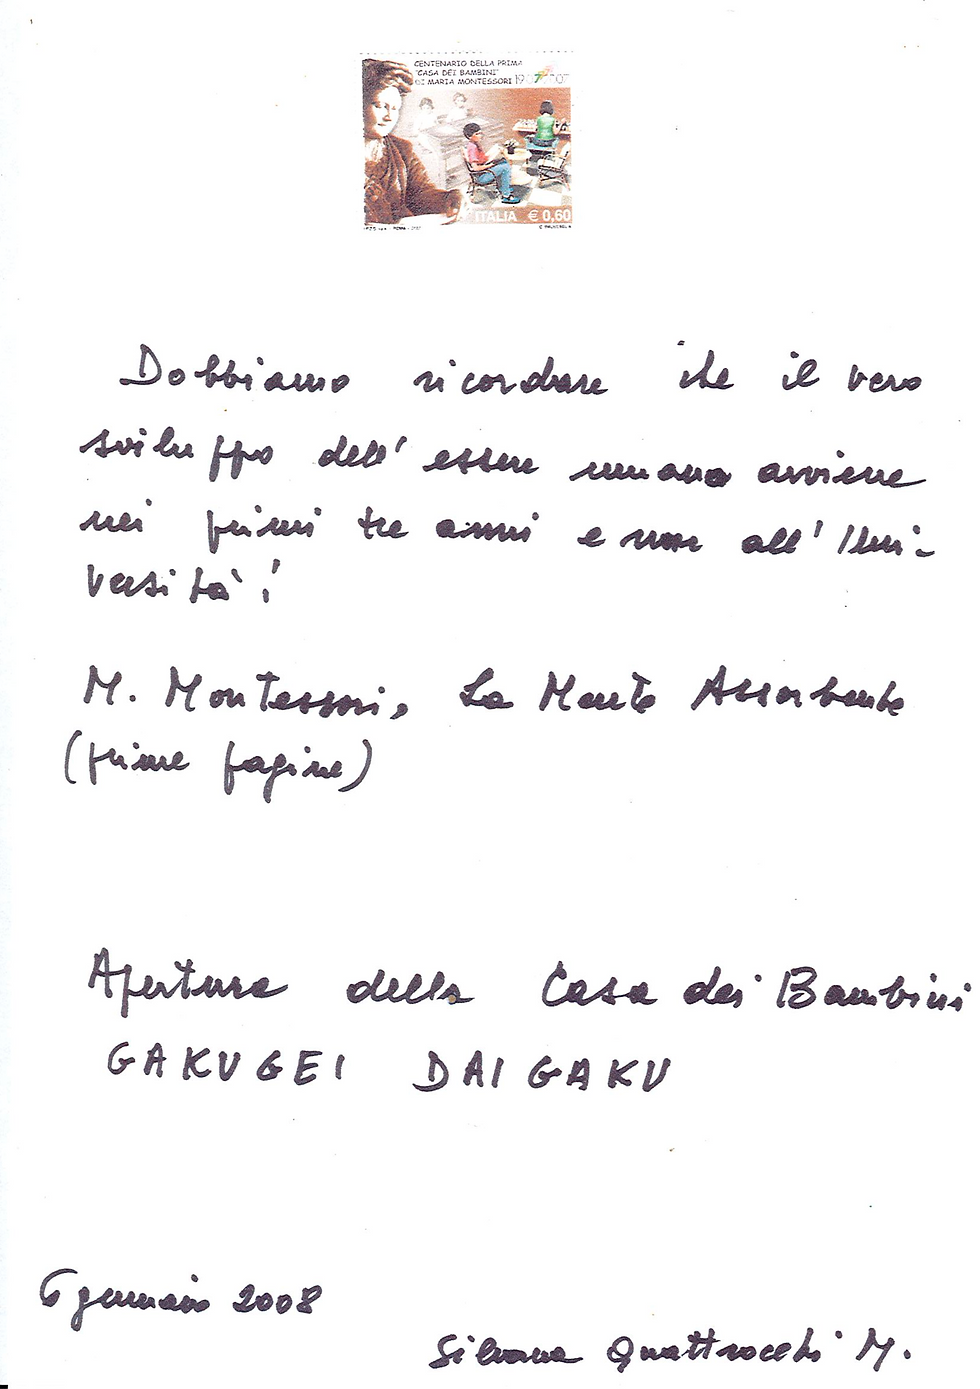 CENTENARIO DELLA PRIMA
"CASA DEI BAMBINI"
DI MARIA MONTESSORI 1907 2007
ITALIA € 0,60
ROMA - 2007
Dobbiamo ricordare che il vero
sviluppo dell'essere umano avviene
nei primi tre anni e non all'Uni-
versità!
M. Montessori, La Mente Assorbente
(prime pagine)
Apertura della Casa dei Bambini
GAKUGEI DAIGAKU
6 gennaio 2008
Silvana Quattrocchi M.